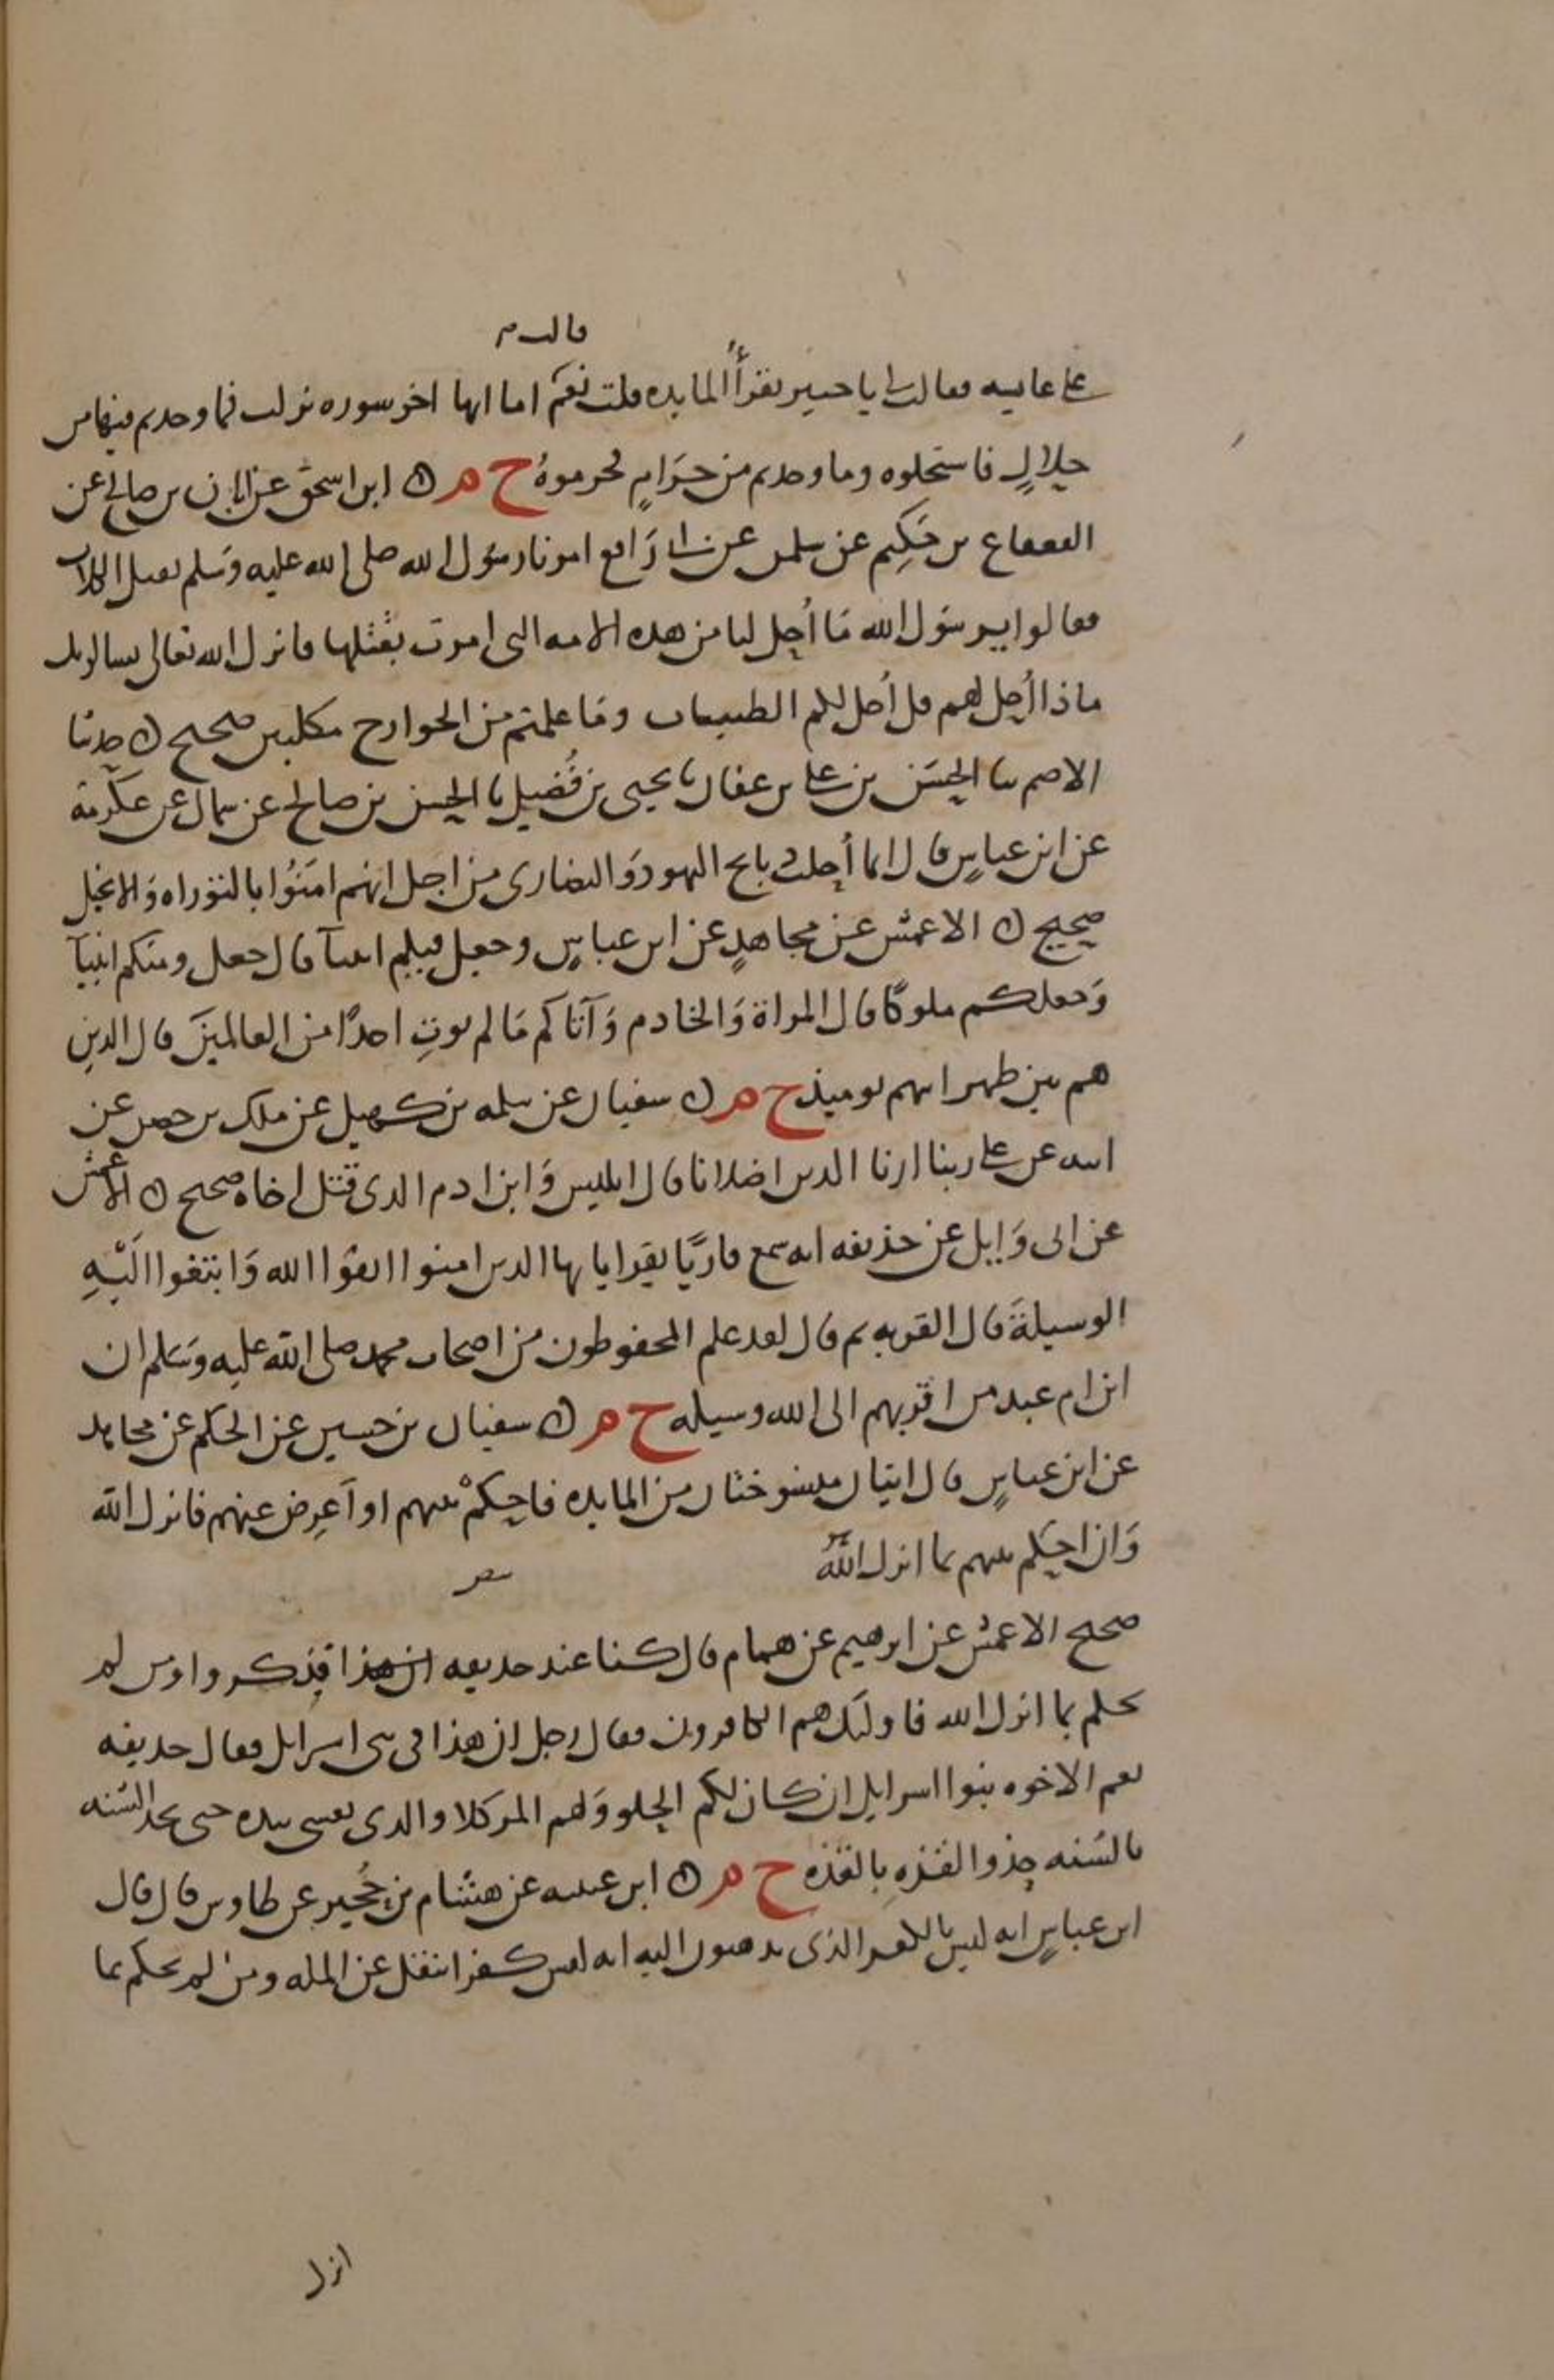 قالت م
على عايشه فقالت لى يا جبير تقرأ المايده قلت نعم اما انها اخر سوره نزلت فما وجدتم فيها من
حلالٍ فاستحلوه وما وجدتم من حرامٍ فحرموهُ خ م ۞ ابن اسحق عن ابان بن صالح عن
القعقاع بن حكِيم عن سلمى عن ابى رَافع امرنا رسُول الله صلى الله عليه وسَلم بقتل الكلاب
فقالوا يرسَول الله مَا أُحِل لنا من هذه الامه التى امرت بقتلها فانزل الله تعالى يسالونك
ماذا أُحِل لهم قل أُحل لكم الطيبات ومَا علمتم من الجوارح مكلبين صحيح ۞ حدثنا
الاصم ثنا الحسَن بن على بن عفان ثنا يحيى بن فُضيل ثنا الحسن بن صالح عن سماك عن عكرمة
عن ابن عباسٍ قال انما أُحلت ذبايح اليهود وَالنصارى من اجل انهم امنَوُا بالتوراه وَالانجيل
صحيح ۞ الاعمش عن مجاهدٍ عن ابن عباسٍ وجعل فيكم انبيآ قال جعل ومنكم انبيآ
وَجعلكم ملوكًا قال المراة وَالخادم وَآتاكم مَا لم يوتِ احدًا من العالمينَ قال الذين
هم بين ظهرانهم يوميذ خ م ۞ سفيان عن سلمه بن كهيل عن ملك بن حصين عن
ابيه عن على ربنا ارنا الذين اضلانا قال ابليس وَابن ادم الذى قتل اخاه صحيح ۞ الاعمش
عن ابى وَايل عن حذيفه انه سمع قاريًا يقرا يايها الذين امنوا اتقوا الله وَابتغوا الَيْهِ
الوسيلةَ قال القربه ثم قال لقد علم المحفوظون من اصحاب محمد صلى الله عليه وسَلم ان
ابن ام عبد من اقربهم الى الله وسيله خ م ۞ سفيان بن حسين عن الحكم عن مجاهد
عن ابن عباسٍ قال ايتان منسوختان من المايده فاحكمْ بينهم او آعرِض عنهم فانزل الله
وَان احكم بينهم بما انزل اللهُ
صحيح الاعمش عن ابرهيم عن همام قال كنا عند حذيفه ان هذا فذكروا ومن لم
يحكم بما انزل الله فاولئك هم الكافرون فقال رجل ان هذا فى بنى اسرايل فقال حذيفه
نعم الاخوه بنوا اسرايل ان كان لكم الحلو وَلهم المر كلا والذى نفسى بيده حتى تحذ السُنه
بالسُنه حذو القذهِ بِالقذه خ م ۞ ابن عيينه عن هشام بن حُجير عن طاوس قال قال
ابن عباسٍ انه ليس بالكفر الذى يذهبون اليه انه ليس كفرا ينقل عن المله ومن لم يحكم بما
انزل